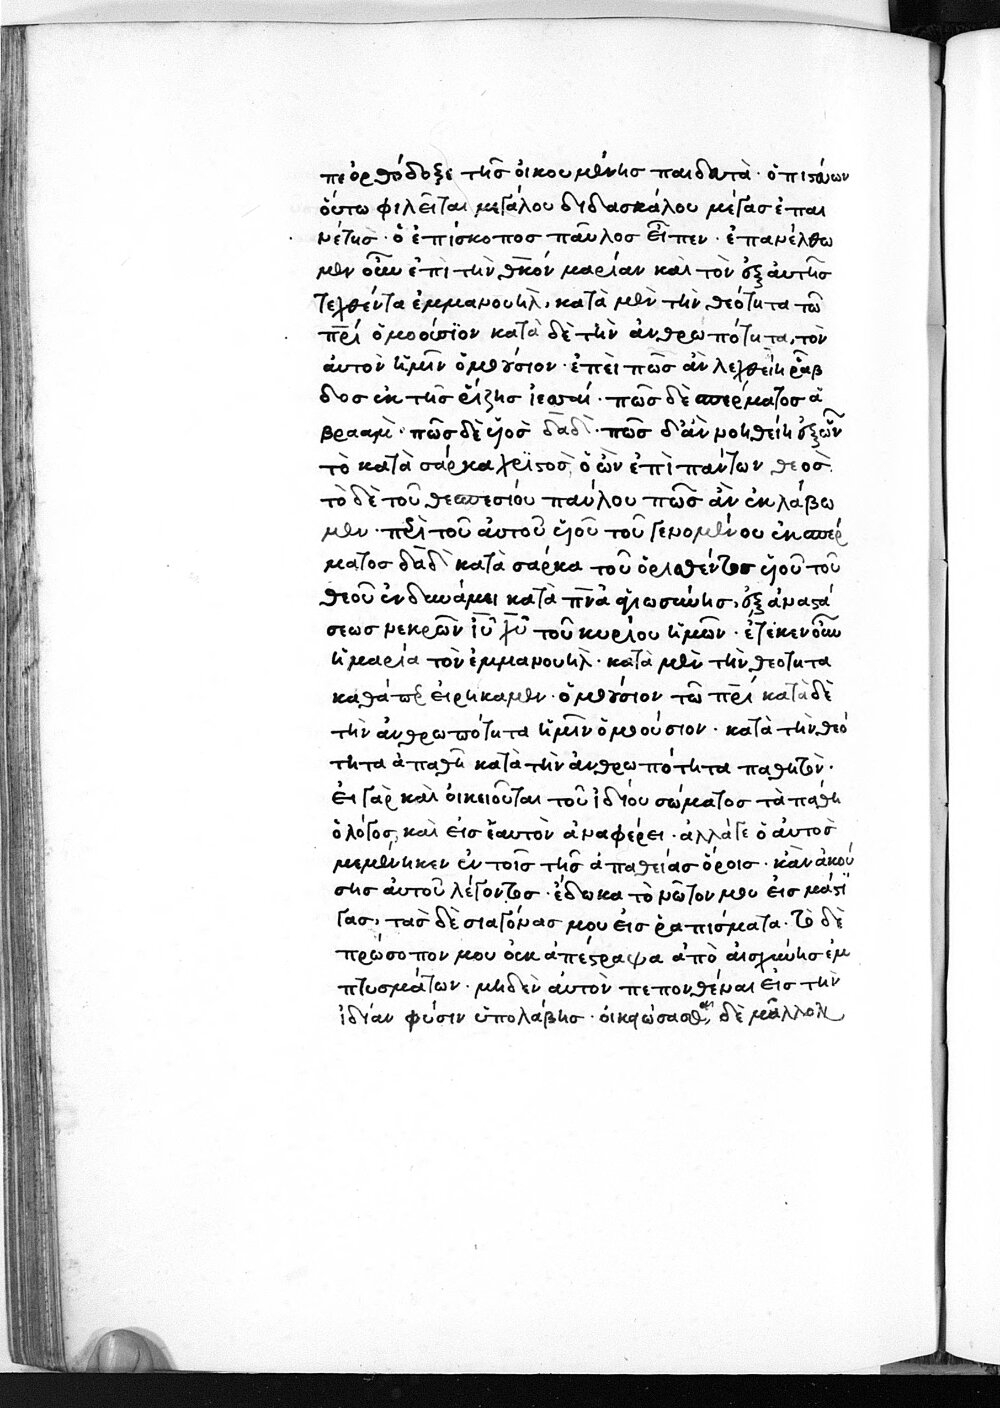 πε ὀρθόδοξε τῆς ὀικουμένης παιδευτὰ · ὁ πιστεύων
ὅυτω φιλεῖται μεγάλου διδασκάλου μέγας ἐπαι
νέτης · ὁ ἐπίσκοπος παῦλος εἶπεν · ἐπανέλθω
μεν οὖν ἐπὶ τὴν θκον μαρίαν καὶ τὸν ἐξ ἀυτῆς
τεχθέντα ἐμμανουήλ, κατὰ μὲν τὴν θεότητα τῶ
πρι ὁμοούσϊον κατὰ δὲ τὴν ἀνθρωπότητα, τὸν
ἀυτὸν ἡμῖν ὁμοούσιον · ἐπεὶ πῶς ἂν λεχθείη ῥάβ
δος ἐκ τῆς ῥίζης ἰεσσαί · πῶς δὲ σπέρματος ἀ
βραάμ · πῶς δὲ υἱὸς δαδ · πῶς δ' ἂν νοηθείη ἐξ ὧν
τὸ κατὰ σάρκα χριστὸς ὁ ὢν ἐπὶ πάντων θεὸς.
τὸ δὲ τοῦ θεσπεσίου παύλου πῶς ἂν ἐκλάβω
μεν · περὶ τοῦ ἀυτοῦ υἱοῦ τοῦ γενομένου ἐκ σπέρ
ματος δαδ κατὰ σάρκα τοῦ ὁρισθέντος υἱοῦ τοῦ
θεοῦ ἐν δυνάμει κατὰ πνα ἁγιωσύνης, ἐξ ἀναστά
σεως νεκρῶν ιυ χυ τοῦ κυρίου ἡμῶν · ἐτεκεν οὖν
ἡ μαρία τὸν ἐμμανουήλ · κατὰ μὲν τὴν θεότητα
καθάπερ ἐιρήκαμεν · ὁμοούσιον τῶ πρι κατὰ δὲ
τὴν ἀνθρωπότητα ἡμῖν ὁμοούσιον · κατὰ τὴν θεό
τητα ἀπαθῆ κατὰ τὴν ἀνθρωπότητα παθητὸν ·
ἐι γὰρ καὶ ὀικειοῦται τοῦ ἰδίου σώματος τὰ πάθη
ὁ λόγος, καὶ ἐις ἑαυτὸν ἀναφέρει · ἀλλάγε ὁ ἀυτὸς
μεμένηκεν ἐν τοῖς τῆς ἀπαθείας ὅροις · κἂν ἀκού
σης ἀυτοῦ λέγοντος · ἔδωκα τὸν νῶτον μου ἐις μάστι
γας, τὰς δὲ σιαγόνας μου ἐις ῥαπίσματα · τὸ δὲ
πρόσωπον μου ὀυκ ἀπέστραψα ἀπὸ ἀισχύνης ἐμ
πτυσμάτων · μηδὲν ἀυτὸν πεπονθέναι ἐις τὴν
ἰδίαν φύσιν ὑπολάβης · ὀικειώσασθαι δὲ μᾶλλον